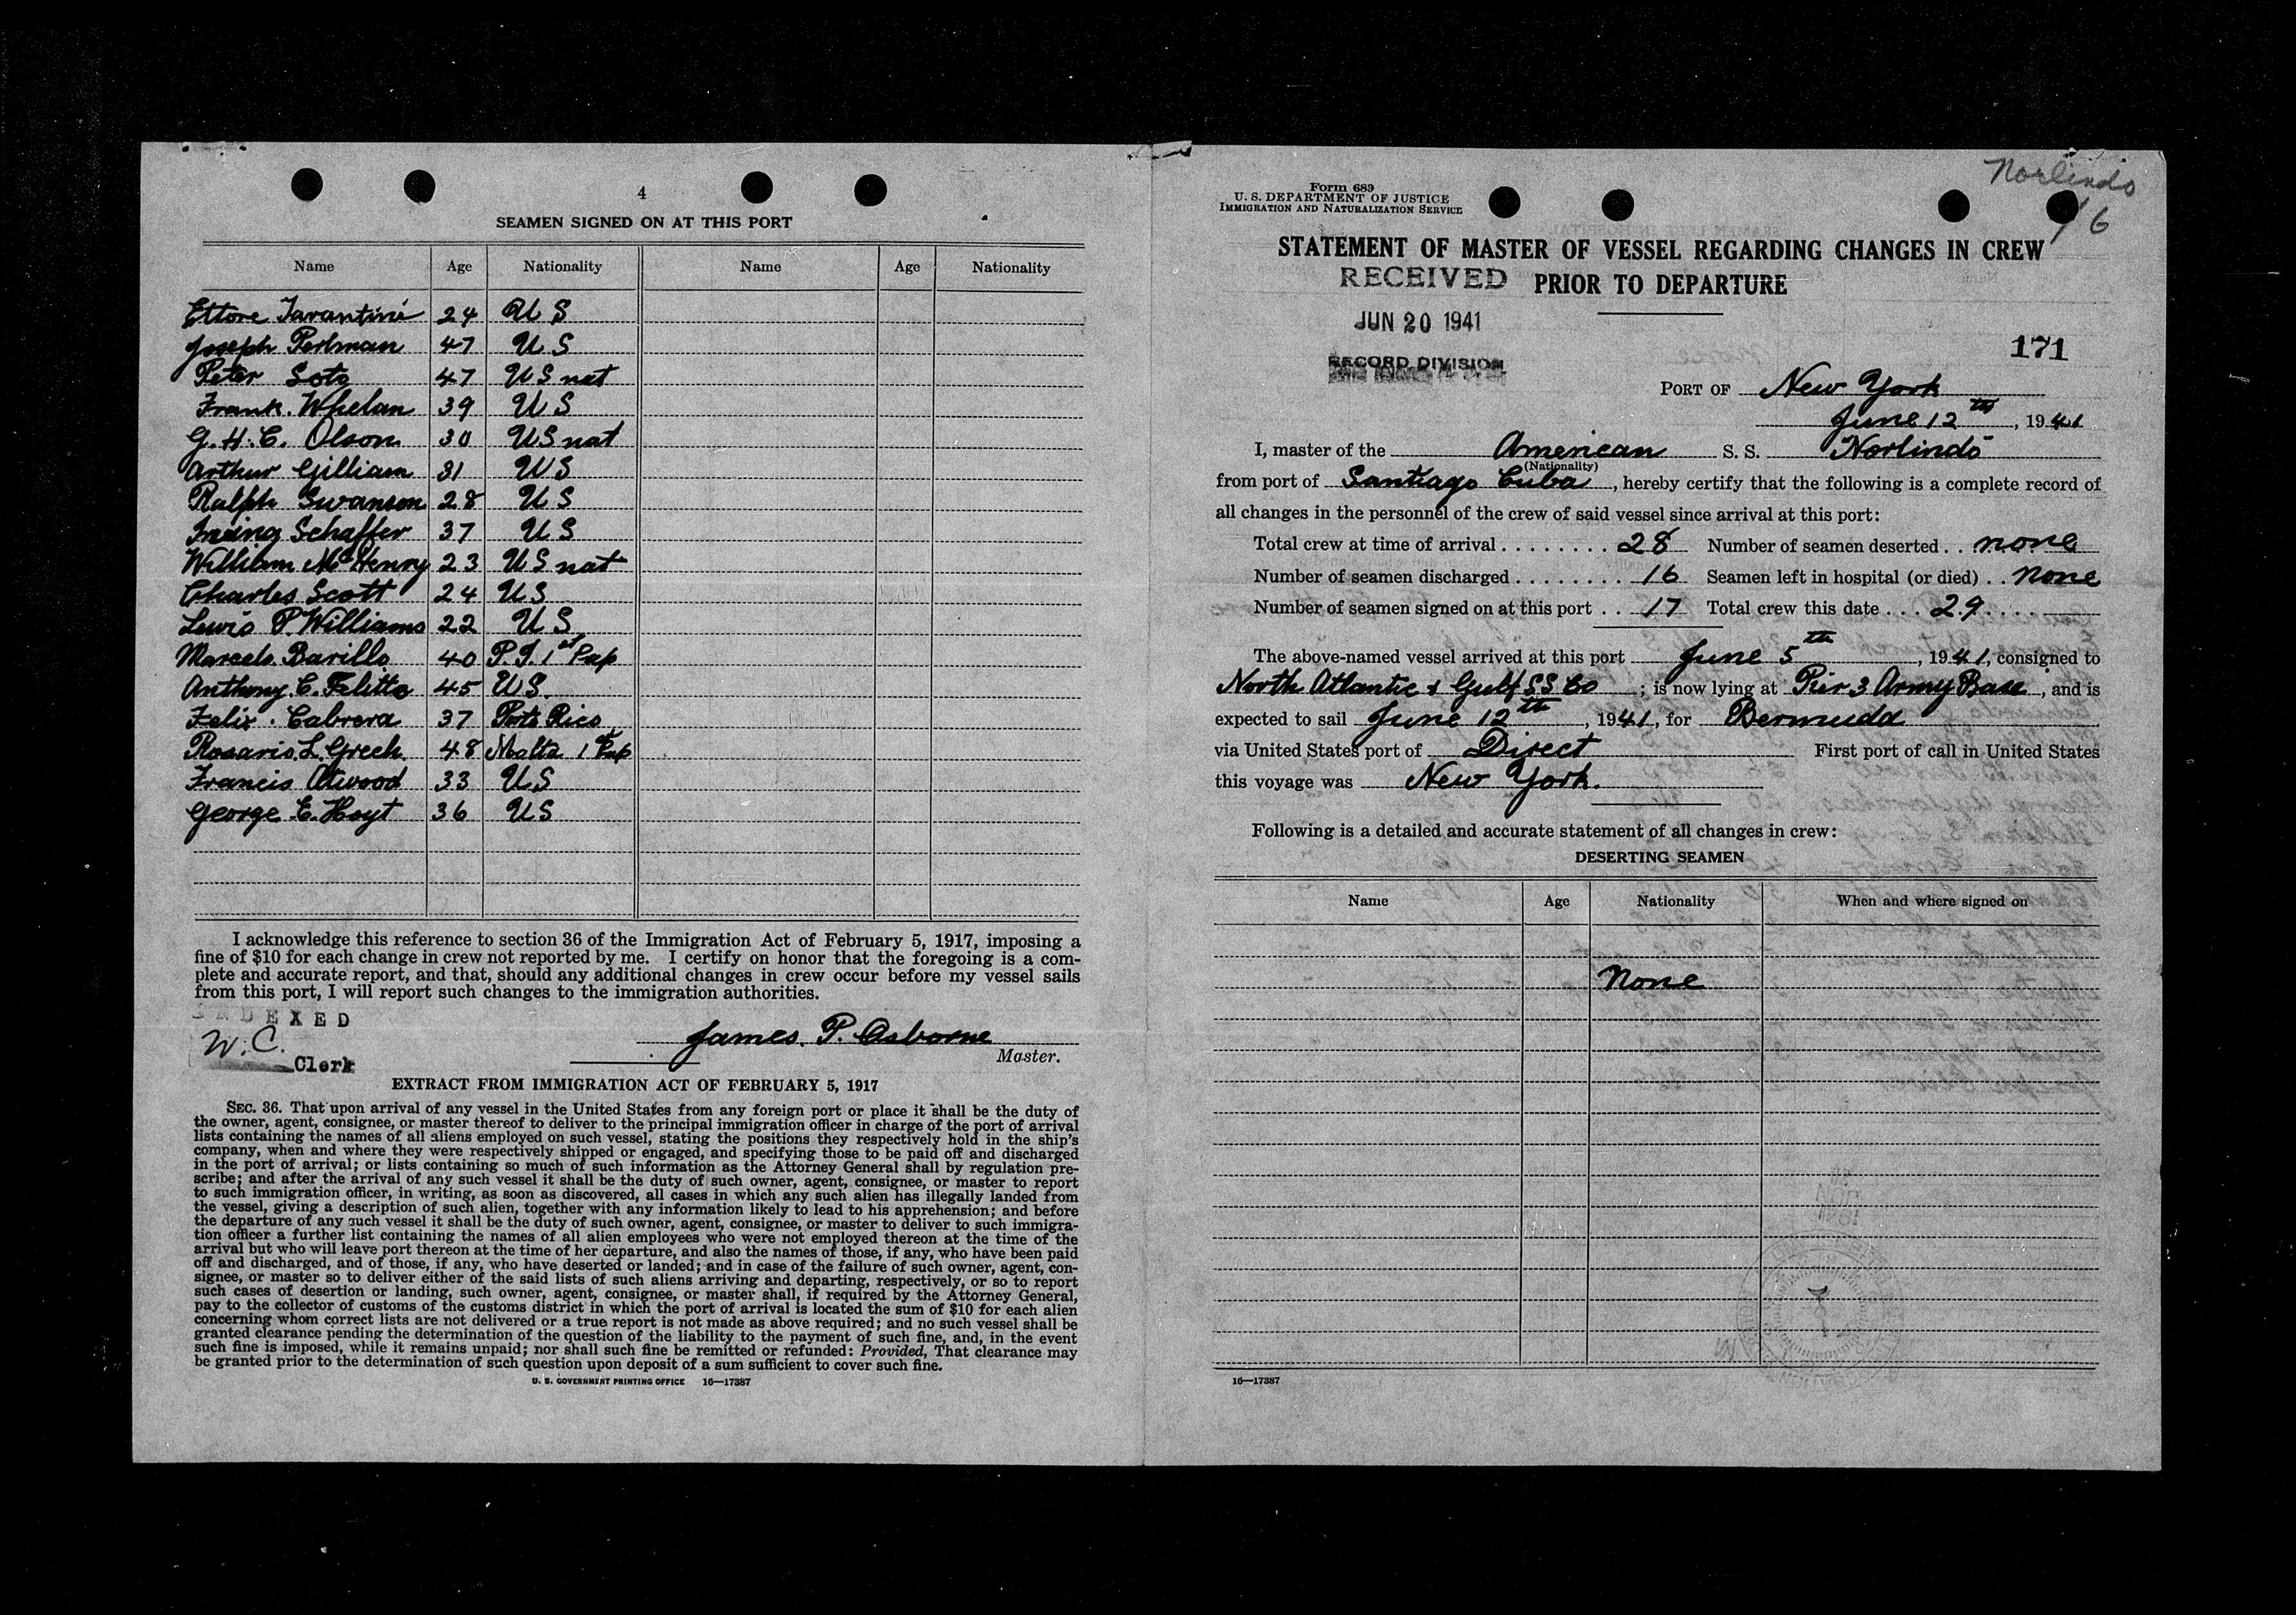 4
SEAMEN SIGNED ON AT THIS PORT
Name Age Nationality Name Age Nationality
Ettore Tarantini 24 U S
Joseph Perlman 47 U S
Peter Soto 47 U S nat
Frank. Whelan 39 U S
G. H. C. Olson 30 U S nat
Arthur Gilliam 31 U S
Ralph Swanson 28 U S
Irving Schaffer 37 U S
William McHenry 23 U S nat
Charles Scott 24 U S
Lewis P. Williams 22 U S
Marcelo Barillo 40 P. I. 1st Pap
Anthony C. Felitto 45 U S.
Felix. Cabrera 37 Porto Rico
Rosario. L. Grech 48 Malta 1st Pap
Francis Atwood 33 U S
George E. Hoyt 36 U S
I acknowledge this reference to section 36 of the Immigration Act of February 5, 1917, imposing a
fine of $10 for each change in crew not reported by me. I certify on honor that the foregoing is a com-
plete and accurate report, and that, should any additional changes in crew occur before my vessel sails
from this port, I will report such changes to the immigration authorities.
INDEXED
W. C.
Clerk
James. P. Osborne
Master.
EXTRACT FROM IMMIGRATION ACT OF FEBRUARY 5, 1917
SEC. 36. That upon arrival of any vessel in the United States from any foreign port or place it shall be the duty of
the owner, agent, consignee, or master thereof to deliver to the principal immigration officer in charge of the port of arrival
lists containing the names of all aliens employed on such vessel, stating the positions they respectively hold in the ship's
company, when and where they were respectively shipped or engaged, and specifying those to be paid off and discharged
in the port of arrival; or lists containing so much of such information as the Attorney General shall by regulation pre-
scribe; and after the arrival of any such vessel it shall be the duty of such owner, agent, consignee, or master to report
to such immigration officer, in writing, as soon as discovered, all cases in which any such alien has illegally landed from
the vessel, giving a description of such alien, together with any information likely to lead to his apprehension; and before
the departure of any such vessel it shall be the duty of such owner, agent, consignee, or master to deliver to such immigra-
tion officer a further list containing the names of all alien employees who were not employed thereon at the time of the
arrival but who will leave port thereon at the time of her departure, and also the names of those, if any, who have been paid
off and discharged, and of those, if any, who have deserted or landed; and in case of the failure of such owner, agent, con-
signee, or master so to deliver either of the said lists of such aliens arriving and departing, respectively, or so to report
such cases of desertion or landing, such owner, agent, consignee, or master shall, if required by the Attorney General,
pay to the collector of customs of the customs district in which the port of arrival is located the sum of $10 for each alien
concerning whom correct lists are not delivered or a true report is not made as above required; and no such vessel shall be
granted clearance pending the determination of the question of the liability to the payment of such fine, and, in the event
such fine is imposed, while it remains unpaid; nor shall such fine be remitted or refunded: Provided, That clearance may
be granted prior to the determination of such question upon deposit of a sum sufficient to cover such fine.
U. S. GOVERNMENT PRINTING OFFICE 16—17387
Norlindo
16
Form 689
U. S. DEPARTMENT OF JUSTICE
IMMIGRATION AND NATURALIZATION SERVICE
STATEMENT OF MASTER OF VESSEL REGARDING CHANGES IN CREW
PRIOR TO DEPARTURE
RECEIVED
JUN 20 1941
RECORD DIVISION
171
PORT OF New York
June 12th, 1941
I, master of the American S. S. Norlindo
(Nationality)
from port of Santiago Cuba, hereby certify that the following is a complete record of
all changes in the personnel of the crew of said vessel since arrival at this port:
Total crew at time of arrival . . . . . . . . 28 Number of seamen deserted . . none
Number of seamen discharged . . . . . . . . 16 Seamen left in hospital (or died) . . none
Number of seamen signed on at this port . . 17 Total crew this date . . . 29 . . . .
The above-named vessel arrived at this port June 5th, 1941, consigned to
North Atlantic & Gulf SS Co; is now lying at Pier 3 Army Base, and is
expected to sail June 12th, 1941, for Bermuda
via United States port of Direct First port of call in United States
this voyage was New York.
Following is a detailed and accurate statement of all changes in crew:
DESERTING SEAMEN
Name Age Nationality When and where signed on
None
16—17387